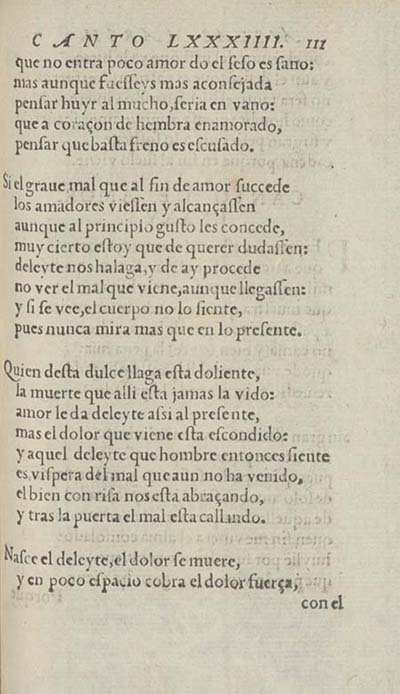 CANTO LXXXIIII. 111
que no entra poco amor do el seso es sano:
mas aunque fuesseys mas aconsejada
pensar huyr al mucho, seria en vano:
que a coraçon de hembra enamorado,
pensar que basta freno es escusado.
Si el graue mal que al fin de amor succede
los amadores viessen y alcançassen
aunque al principio gusto les concede,
muy cierto estoy que de querer dudassen:
deleyte nos halaga, y de ay procede
no ver el mal que viene, aunque llegassen:
y si se vee, el cuerpo no lo siente,
pues nunca mira mas que en lo presente.
Quien desta dulce llaga esta doliente,
la muerte que alli esta jamas la vido:
amor le da deleyte assi al presente,
mas el dolor que viene esta escondido:
y aquel deleyte que hombre entonces siente
es vispera del mal que aun no ha venido,
el bien con risa nos esta abraçando,
y tras la puerta el mal esta callando.
Nasce el deleyte, el dolor se muere,
y en poco espacio cobra el dolor fuerça,
con el